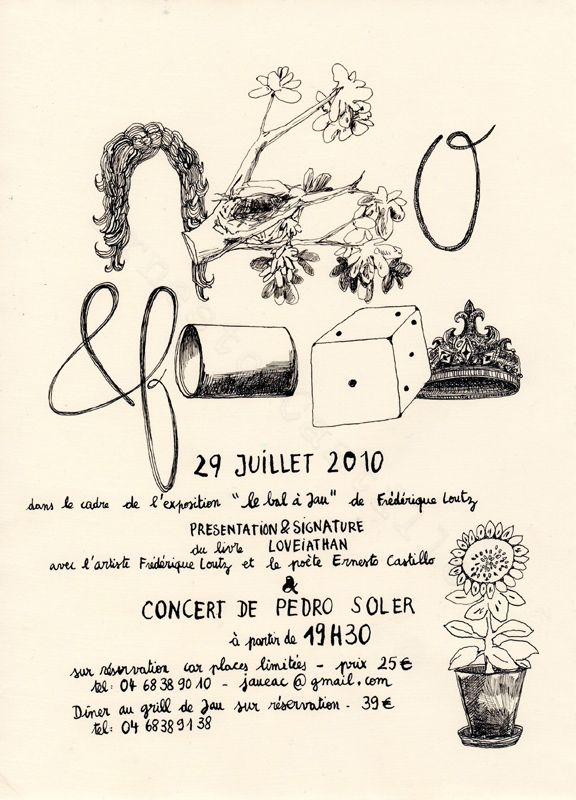 O
& f
29 JUILLET 2010
dans le cadre de l'exposition "le bal à Jau" de Frédérique Loutz
PRESENTATION & SIGNATURE
du livre LOVEIATHAN
avec l'artiste Frédérique Loutz et le poète Ernesto Castillo
&
CONCERT DE PEDRO SOLER
à partir de 19H30
sur réservation car places limitées - prix 25€
tel: 04 68 38 90 10 - jaueac@gmail.com
Dîner au grill de Jau sur réservation - 39€
tel: 04 68 38 91 38